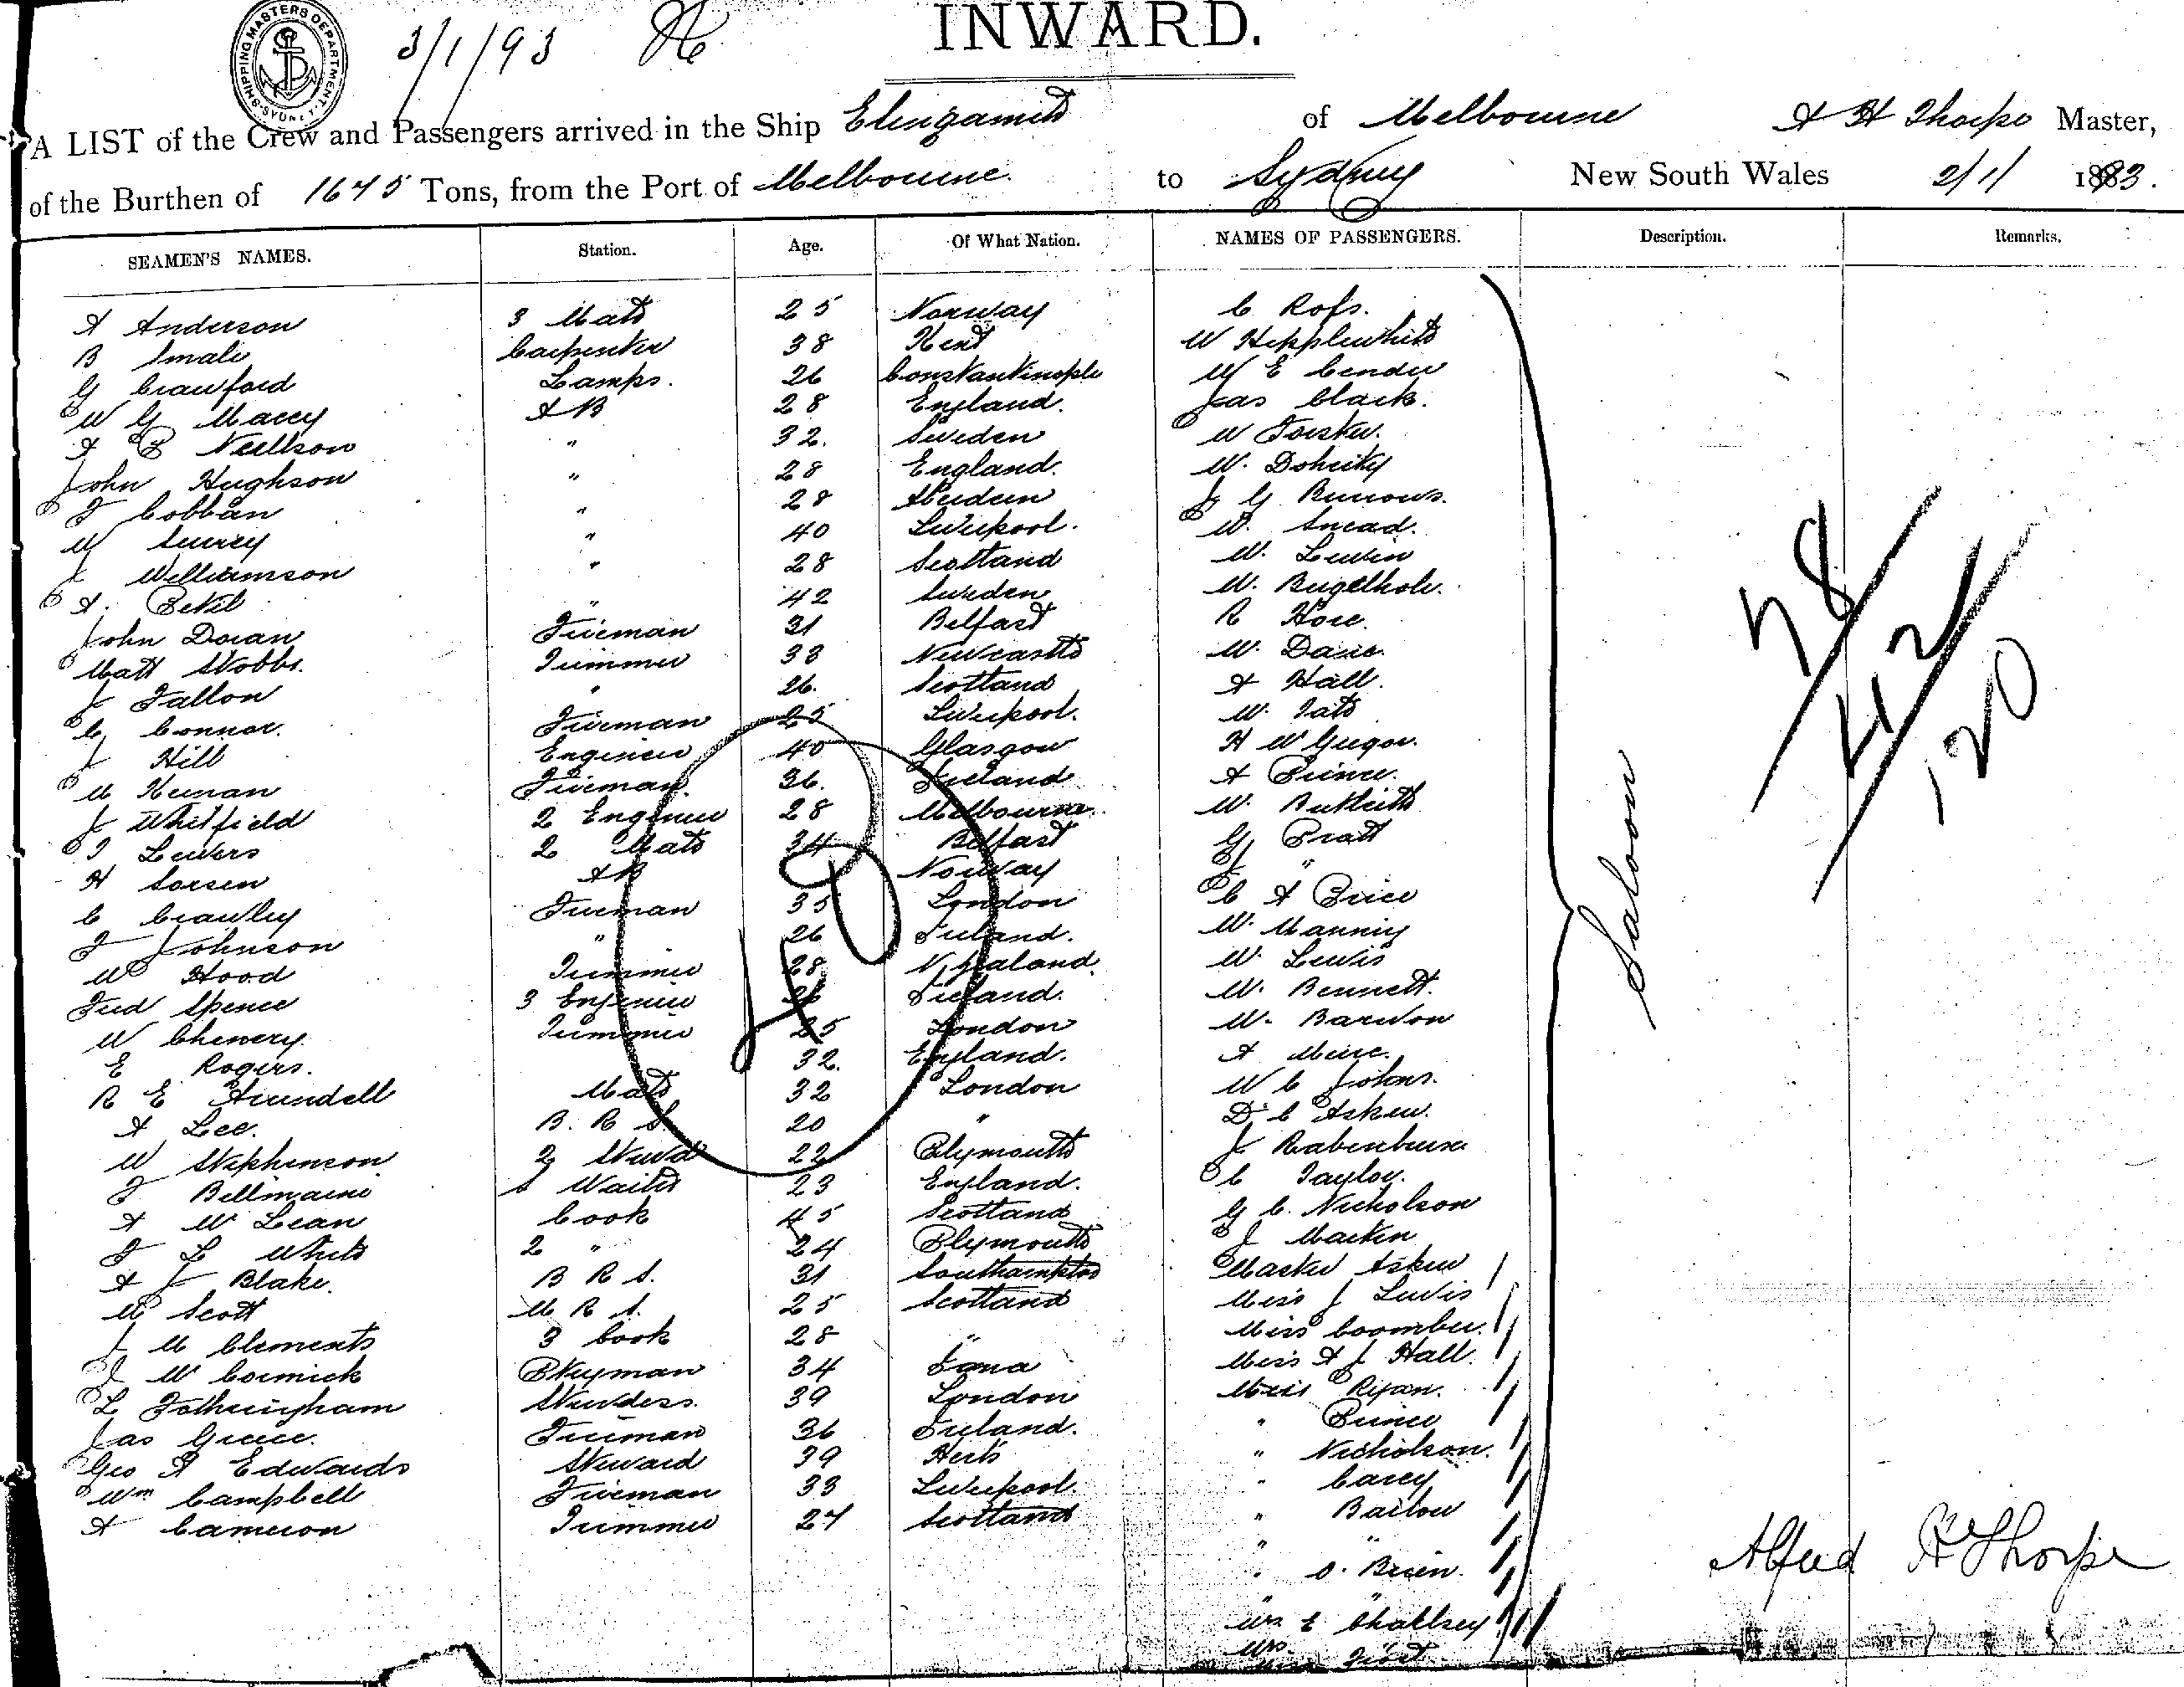 SHIPPING MASTERS DEPARTMENT. SYDNEY
3/1/93
INWARD.
A LIST of the Crew and Passengers arrived in the Ship Elingamite of Melbourne A H Thorpe Master,
of the Burthen of 1675 Tons, from the Port of Melbourne. to Sydney New South Wales 2/1/ 1893.
SEAMEN'S NAMES. Station. Age. Of What Nation. NAMES OF PASSENGERS. Description. Remarks.
A Anderson 3 Mate 25 Norway C Ross.
B Smale Carpenter 38 Kent W Hepplewhite
G Crawford Lamps. 26 Constantinople W E Cender
W G Macey AB 28 England. Jas Clark.
A P Neilson " 32. Sweden W Forster.
John Hughson " 28 England. W. Doherty
J Cobban " 28 Aberdeen J G Burrows.
W Surrey " 40 Liverpool. W. Snead.
J Williamson " 28 Scotland W. Lewin
A. Petil " 42 Sweden W. Bugelhole.
John Doran Fireman 31 Belfast R Hore.
Matt Stobbs. Trimmer 33 Newcastle W. Davie.
J Fallon " 26. Scotland A Hall.
C Connor. Fireman 25 Liverpool. W. Tate
J Hill Engineer 40 Glasgow H McGregor.
M Keenan Fireman. 36. Ireland A Prince.
J Whitfield 2 Engineer 28 Melbourne W.
J Leivers 2 Mate 34 Belfast G Pratt
H Sorsen AB Norway J "
C Crawley Fireman 35 London C A Price
J Johnson " 26 Ireland. W. Manning
W Hood Trimmer 28 N Zealand. W. Lewis
Fred Spence 3 Engineer 26 Ireland. W. Bennett.
W Chenery. Trimmer 25 London W. Barwon
E Rogers. 32. England. A Muir.
R E Arundell Mate 32 London W C Johns.
A Lee. B. R S. 20 " D C Askew.
W Stephenson 2 Stewd 22 Plymouth J
J Bellmaine S Waiter 23 England. C Taylor.
A McLean Cook 45 Scotland G C. Nicholson
J L White 2 " 24 Plymouth J Mackin
A J Blake. B R S. 31 Southampton Master Askew
W Scott M. R S. 25 Scotland Miss J Lewis
J M Clements 3 Cook 28 " Miss Coomber.
J McCormick Pkeyman 34 Iona Miss A J Hall.
L Fotheringham Stewdess. 39 London Miss Ryan.
Jas Greece. Fireman 36 Ireland. " Prince
Geo A Edwards Steward 39 Herts " Nicholson.
Wm Campbell Fireman 33 Liverpool " Carey
A Cameron Trimmer 27 Scotland " Barlow
" "
" O. Brien.
" "
Mrs E Challsey
Mrs
Saloon
78
42
120
Alfred H Thorpe